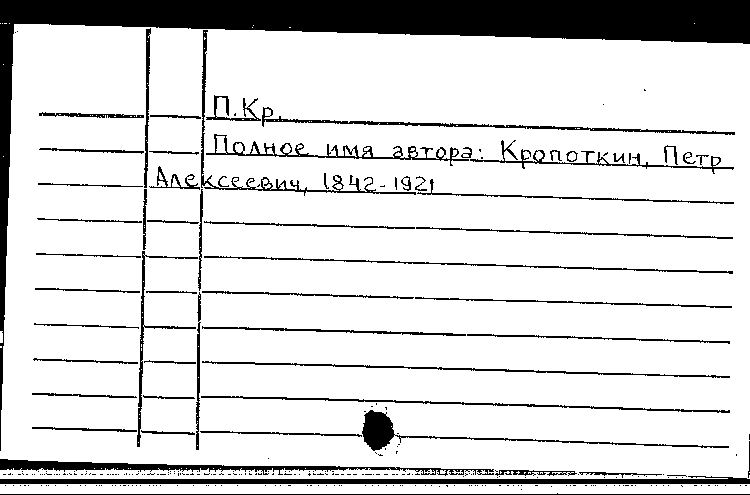 П.Кр.
Полное имя автора: Кропоткин, Петр
Алексеевич, 1842-1921